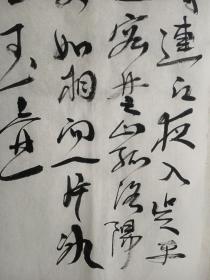 連江夜入吳平
客楚山孤洛陽
如相问一片冰
玉壺